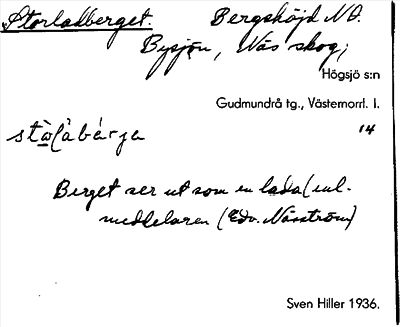 Storladberget. Bergshöjd NO.
Bysjön, Näs skog,
Högsjö s:n
Gudmundrå tg., Västernorrl. l.
14
Berget ser ut som en lada (enl.
meddelaren (Edv. Näsström)
Sven Hiller 1936.